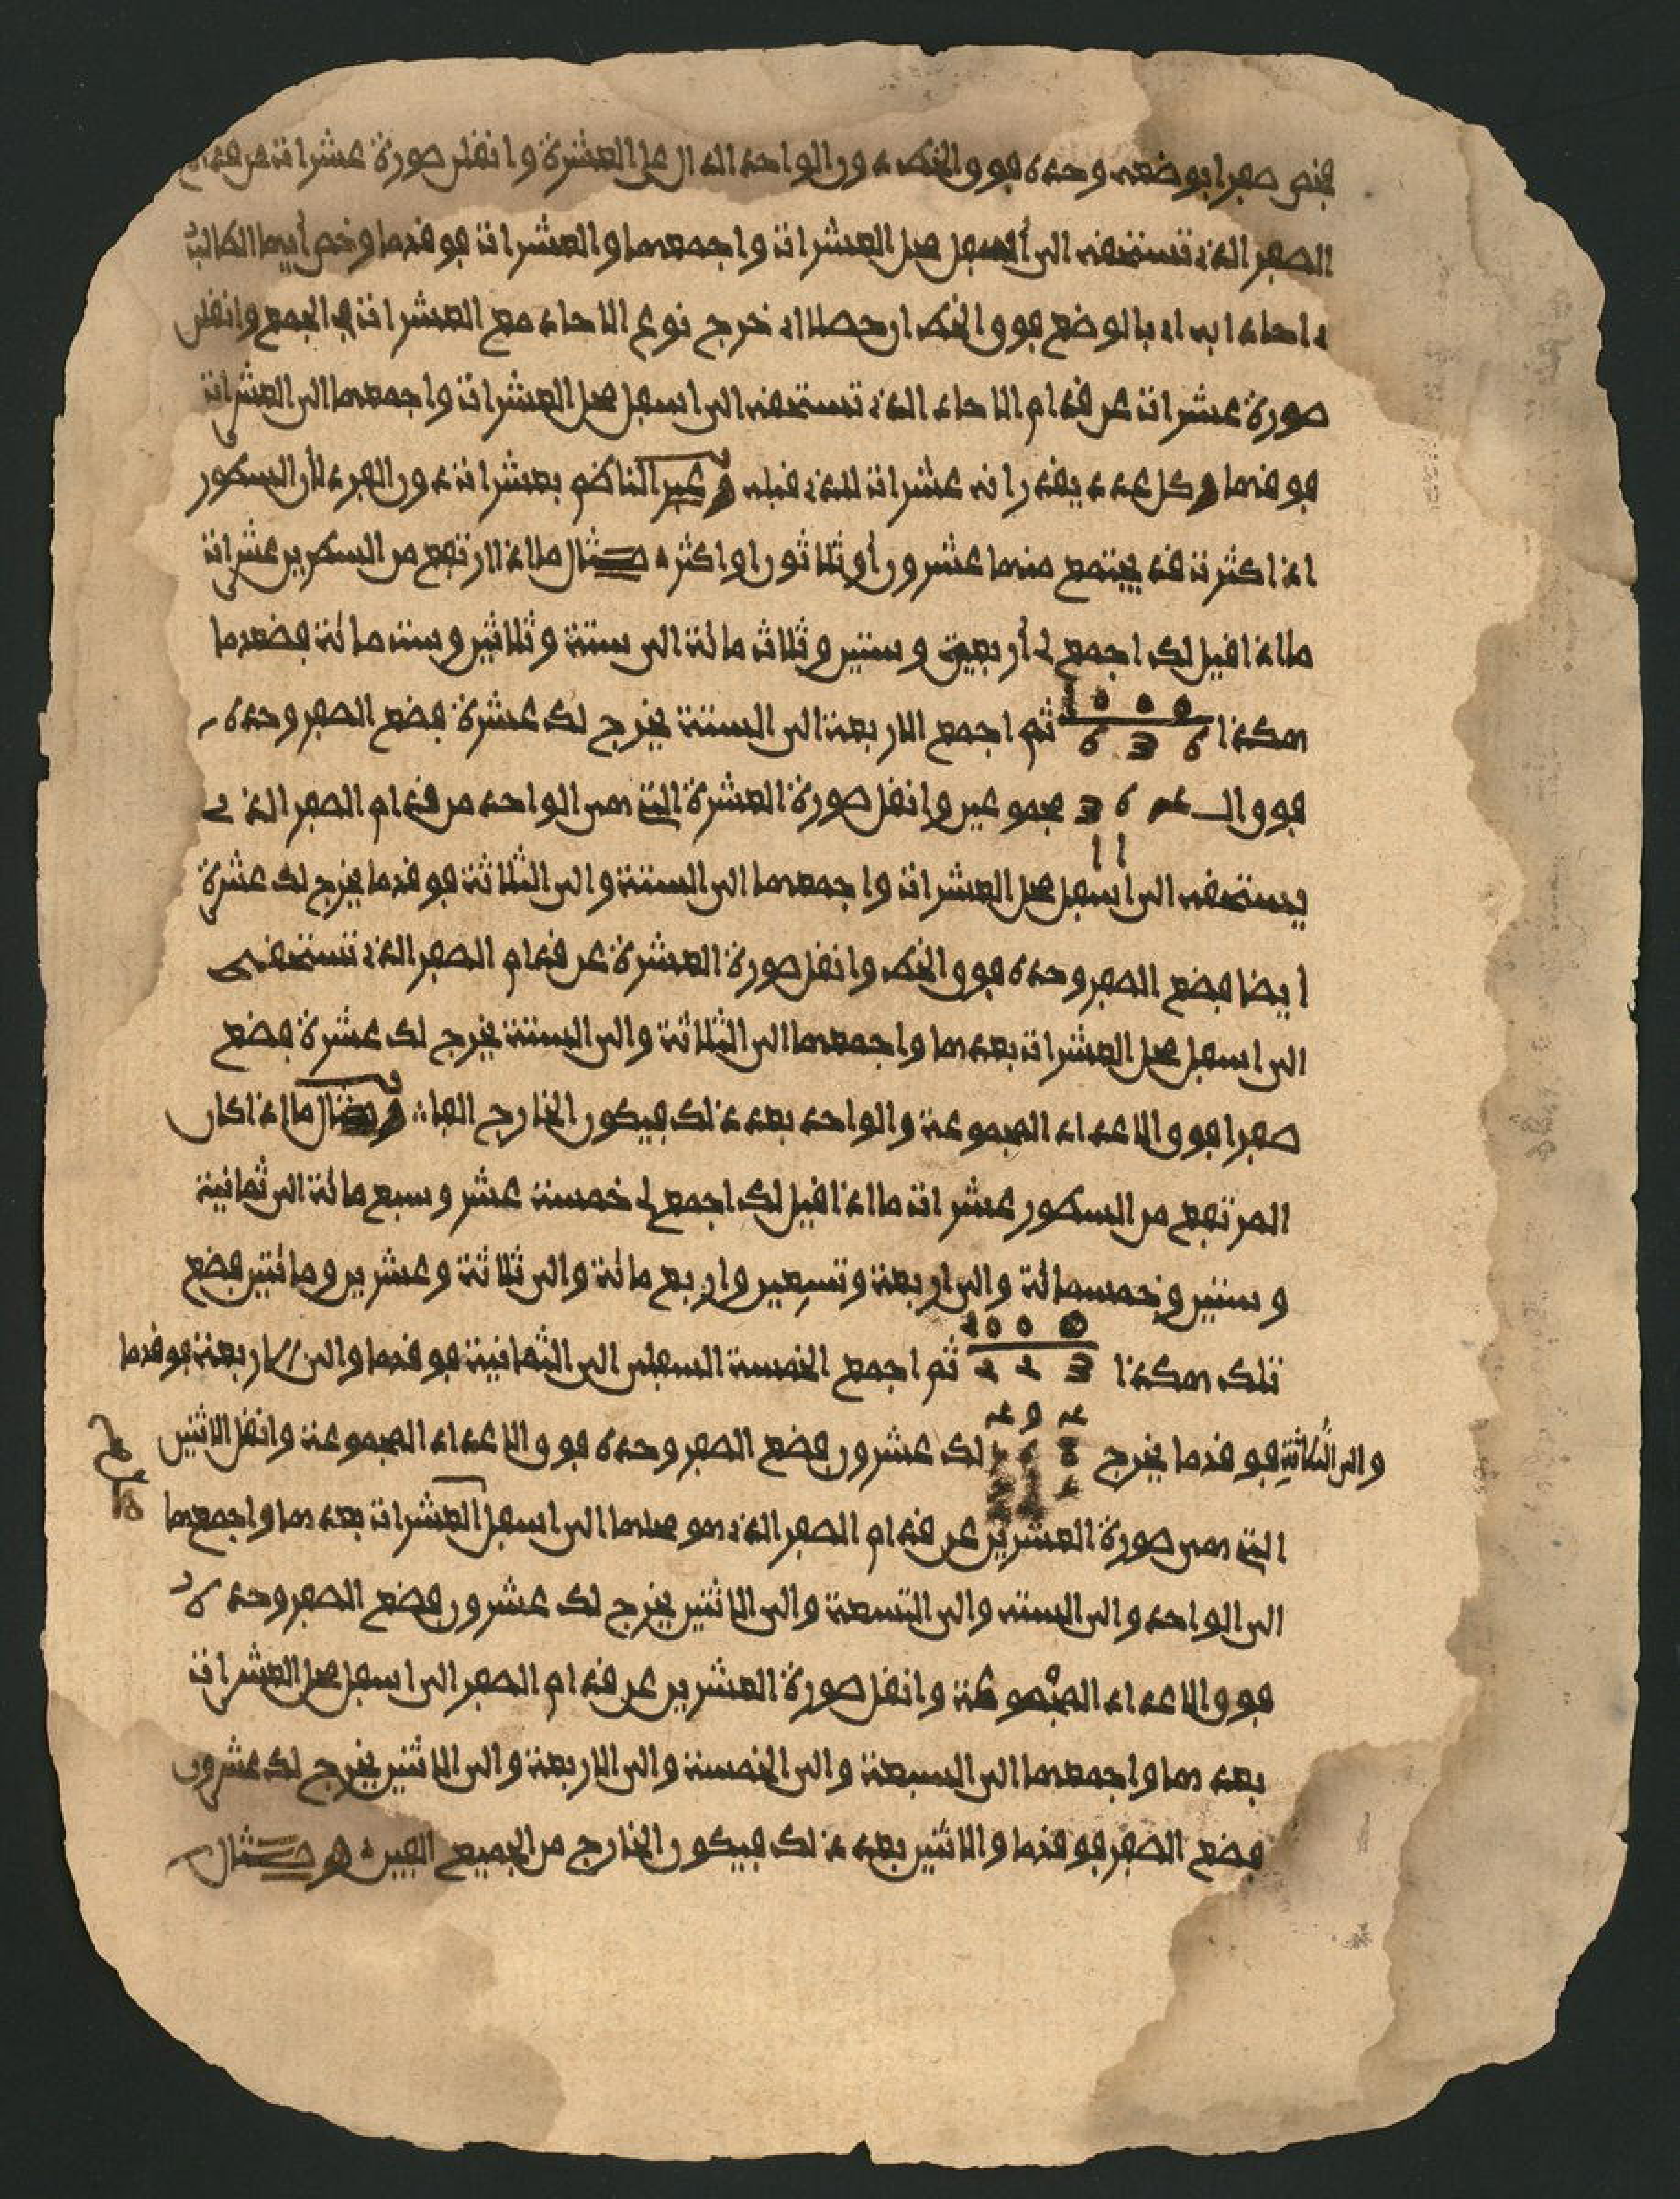 صفرا بوضعه وحده فوق الخط دون الواحد الدال على العشرة وانقل صورة عشرات عن قدام
الصفر الذي تستحقه إلى أسفل محل العشرات واجمعها والعشرات فوقها وخص أيها الطالب
احاد ابدا بالوضع فوق الخط ان حصلا اذ خرج نوع الاحاد مع العشرات في الجمع وانقل
صورة عشرات عن قدام الاحاد الذي تستحقه الى اسفل محل العشرات واجمعها الى العشرات
فوقها وكل عدد يقدر انه عشرات للذي قبله وعبر الناظم بعشرات دون العرد لأن السطور
اذا كثرت قد يجتمع منها عشرون أو ثلاثون او اكثر مثال ما اذا ارتفع من السطرين عشرات
ما اذا قيل لك اجمع لي أربعة وستين وثلاث مائة الى ستة وثلاثين وست مائة فضعها
هكذا 1000 / 636 ثم اجمع الاربعة الى الستة يخرج لك عشرة فضع الصفر وحده
فوق الـ 364 مجموعين وانقل صورة العشرة التي هي الواحد من قدام الصفر الذي
11
يستحقه الى اسفل محل العشرات واجمعها الى الستة والى الثلاثة فوقها يخرج لك عشرة
ايضا فضع الصفر وحده فوق الخط وانقل صورة العشرة عن قدام الصفر الذي تستحقه
الى اسفل محل العشرات بعدها واجمعها الى الثلاثة والى الستة يخرج لك عشرة فضع
صفرا فوق الاعداد المجموعة والواحد بعد ذلك فيكون الخارج الفا ومثال ما اذا كان
المرتفع من السطور عشرات ما اذا قيل لك اجمع لي خمسة عشر وسبع مائة الى ثمانية
وستين وخمسمائة والى اربعة وتسعين واربع مائة والى ثلاثة وعشرين ومائتين فضع
تلك هكذا 2000 / 223 ثم اجمع الخمسة السفلى الى الثمانية فوقها والى الاربعة فوقها
494
والى الثلاثة فوقها يخرج 8 6 لك عشرون فضع الصفر وحده فوق الاعداد المجموعة وانقل الاثنين
التي هي صورة العشرين عن قدام الصفر الذي هو محلها الى اسفل العشرات بعدها واجمعها
الى الواحد والى الستة والى التسعة والى الاثنين يخرج لك عشرون فضع الصفر وحده
فوق الاعداد المجموعة وانقل صورة العشرين عن قدام الصفر الى اسفل محل العشرات
بعدها واجمعها الى السبعة والى الخمسة والى الاربعة والى الاثنين يخرج لك عشرون
فضع الصفر فوقها والاثنين بعد ذلك فيكون الخارج من الجميع الفين ومثال